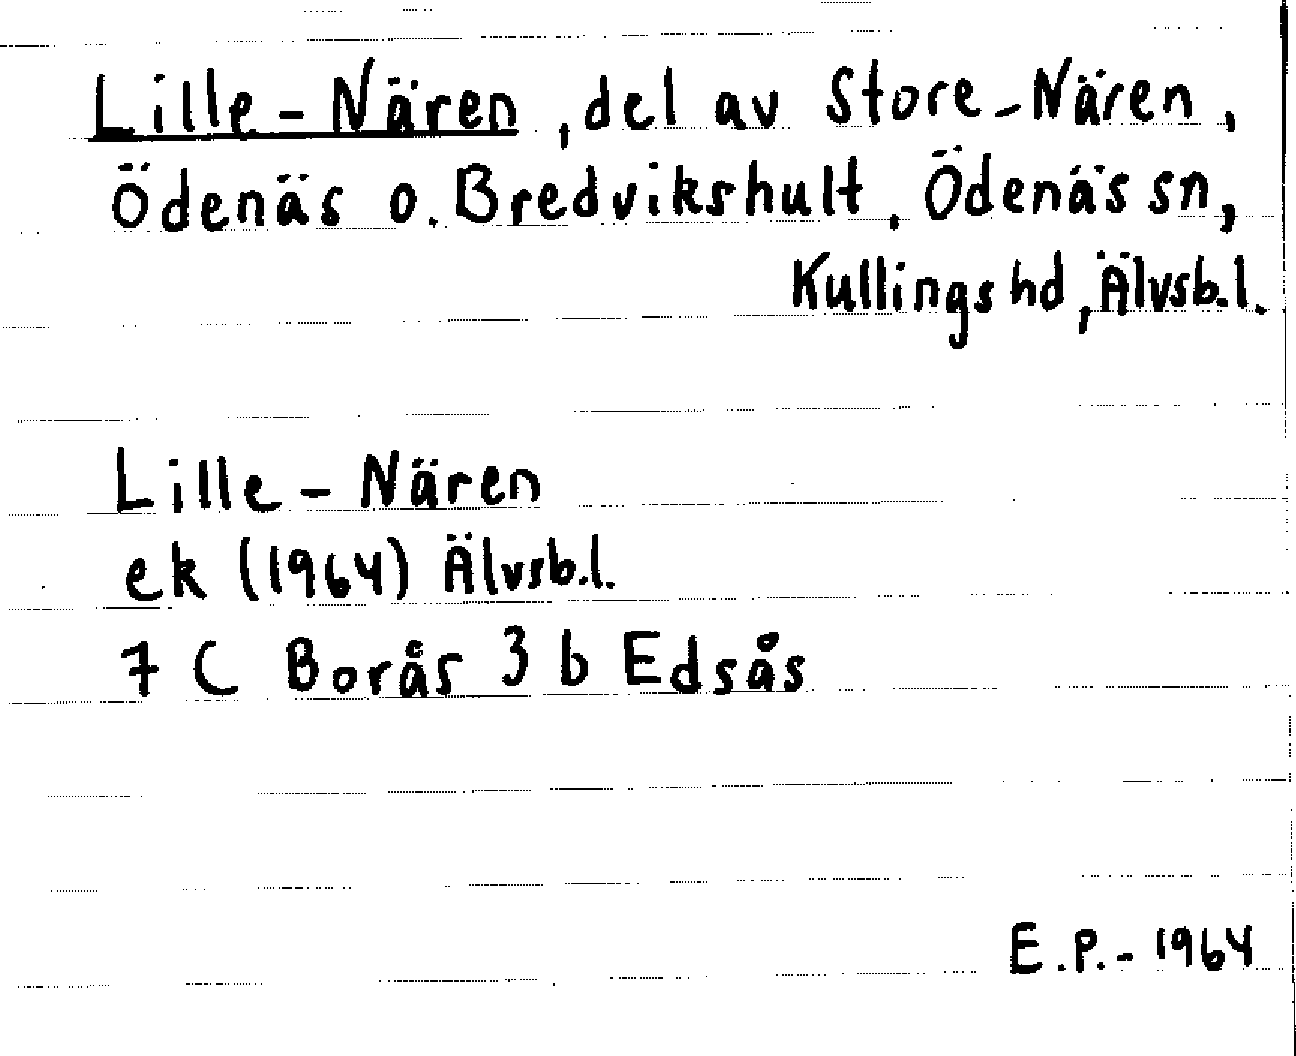 Lille-Nären, del av Store-Nären,
Ödenäs o. Bredvikshult, Ödenäs sn,
Kullings hd, Älvsb.l.
Lille-Nären
ek (1964) Älvsb.l.
7 C Borås 3 b Edsås
E.P.-1964